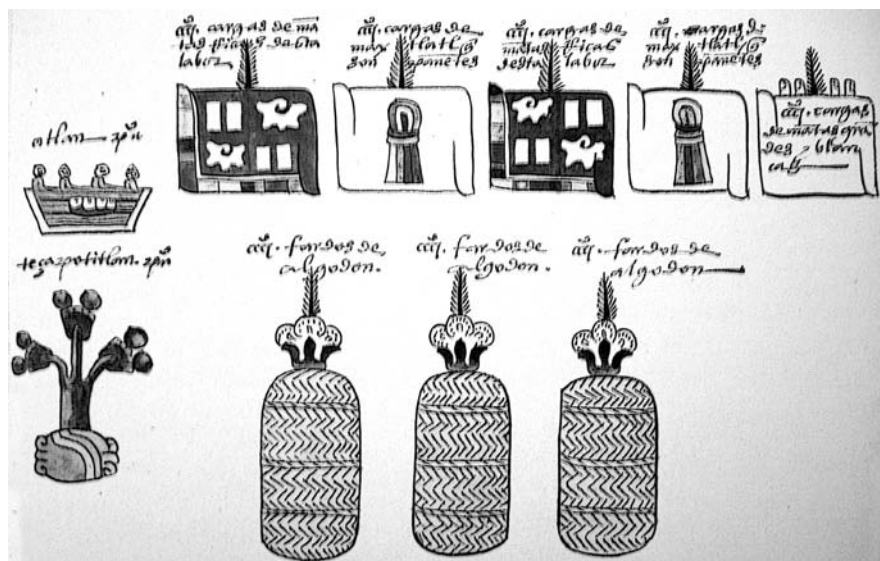 cccc. cargas de mā
tas ricas desta
labor
cccc. cargas de
maxtlatl q̃
son panetes
cccc. cargas de
mātas ricas
desta labor
cccc. cargas d
maxtlatl q̃
son panetes
cccc. cargas
de mātas grā
des blan
cas
atlan. puº
teçapotitlan. puº
cccc. fardos de
algodon.
cccc. fardos de
algodon.
cccc. fardos de
algodon